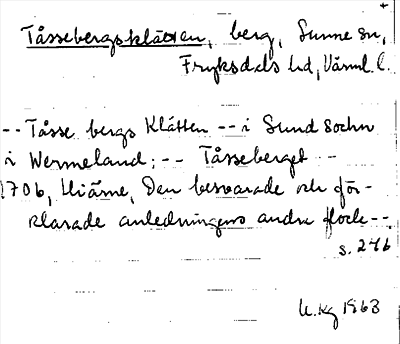 Tåssebergsklätten, berg, Sunne sn,
Fryksdals hd, Värml. l.
-- Tåsse bergs Klätten -- i Sund Sochn
i Wermeland; -- Tåsseberget --
1706, Hiärne, Den beswarade och för-
klarade anledningens andra flock --
s. 276
U. Kg 1963